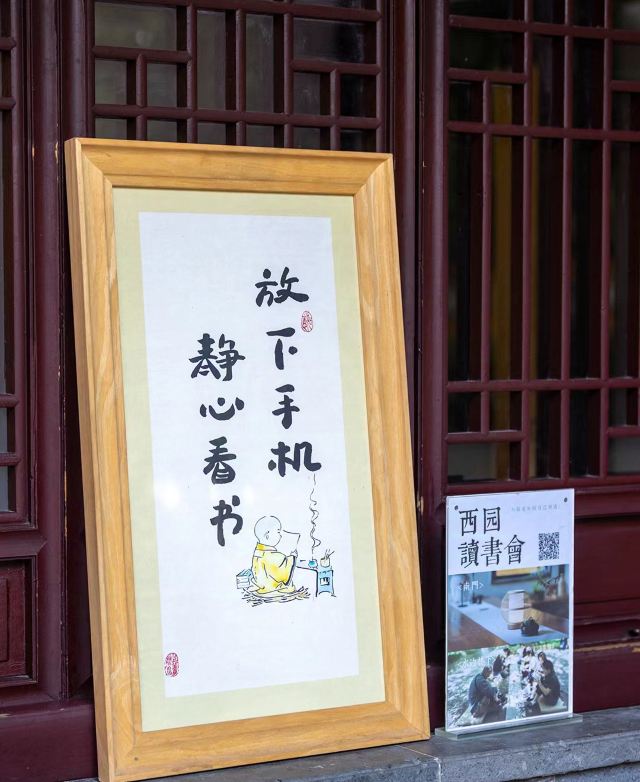 放下手机
静心看书
西园
讀書會
<南門>